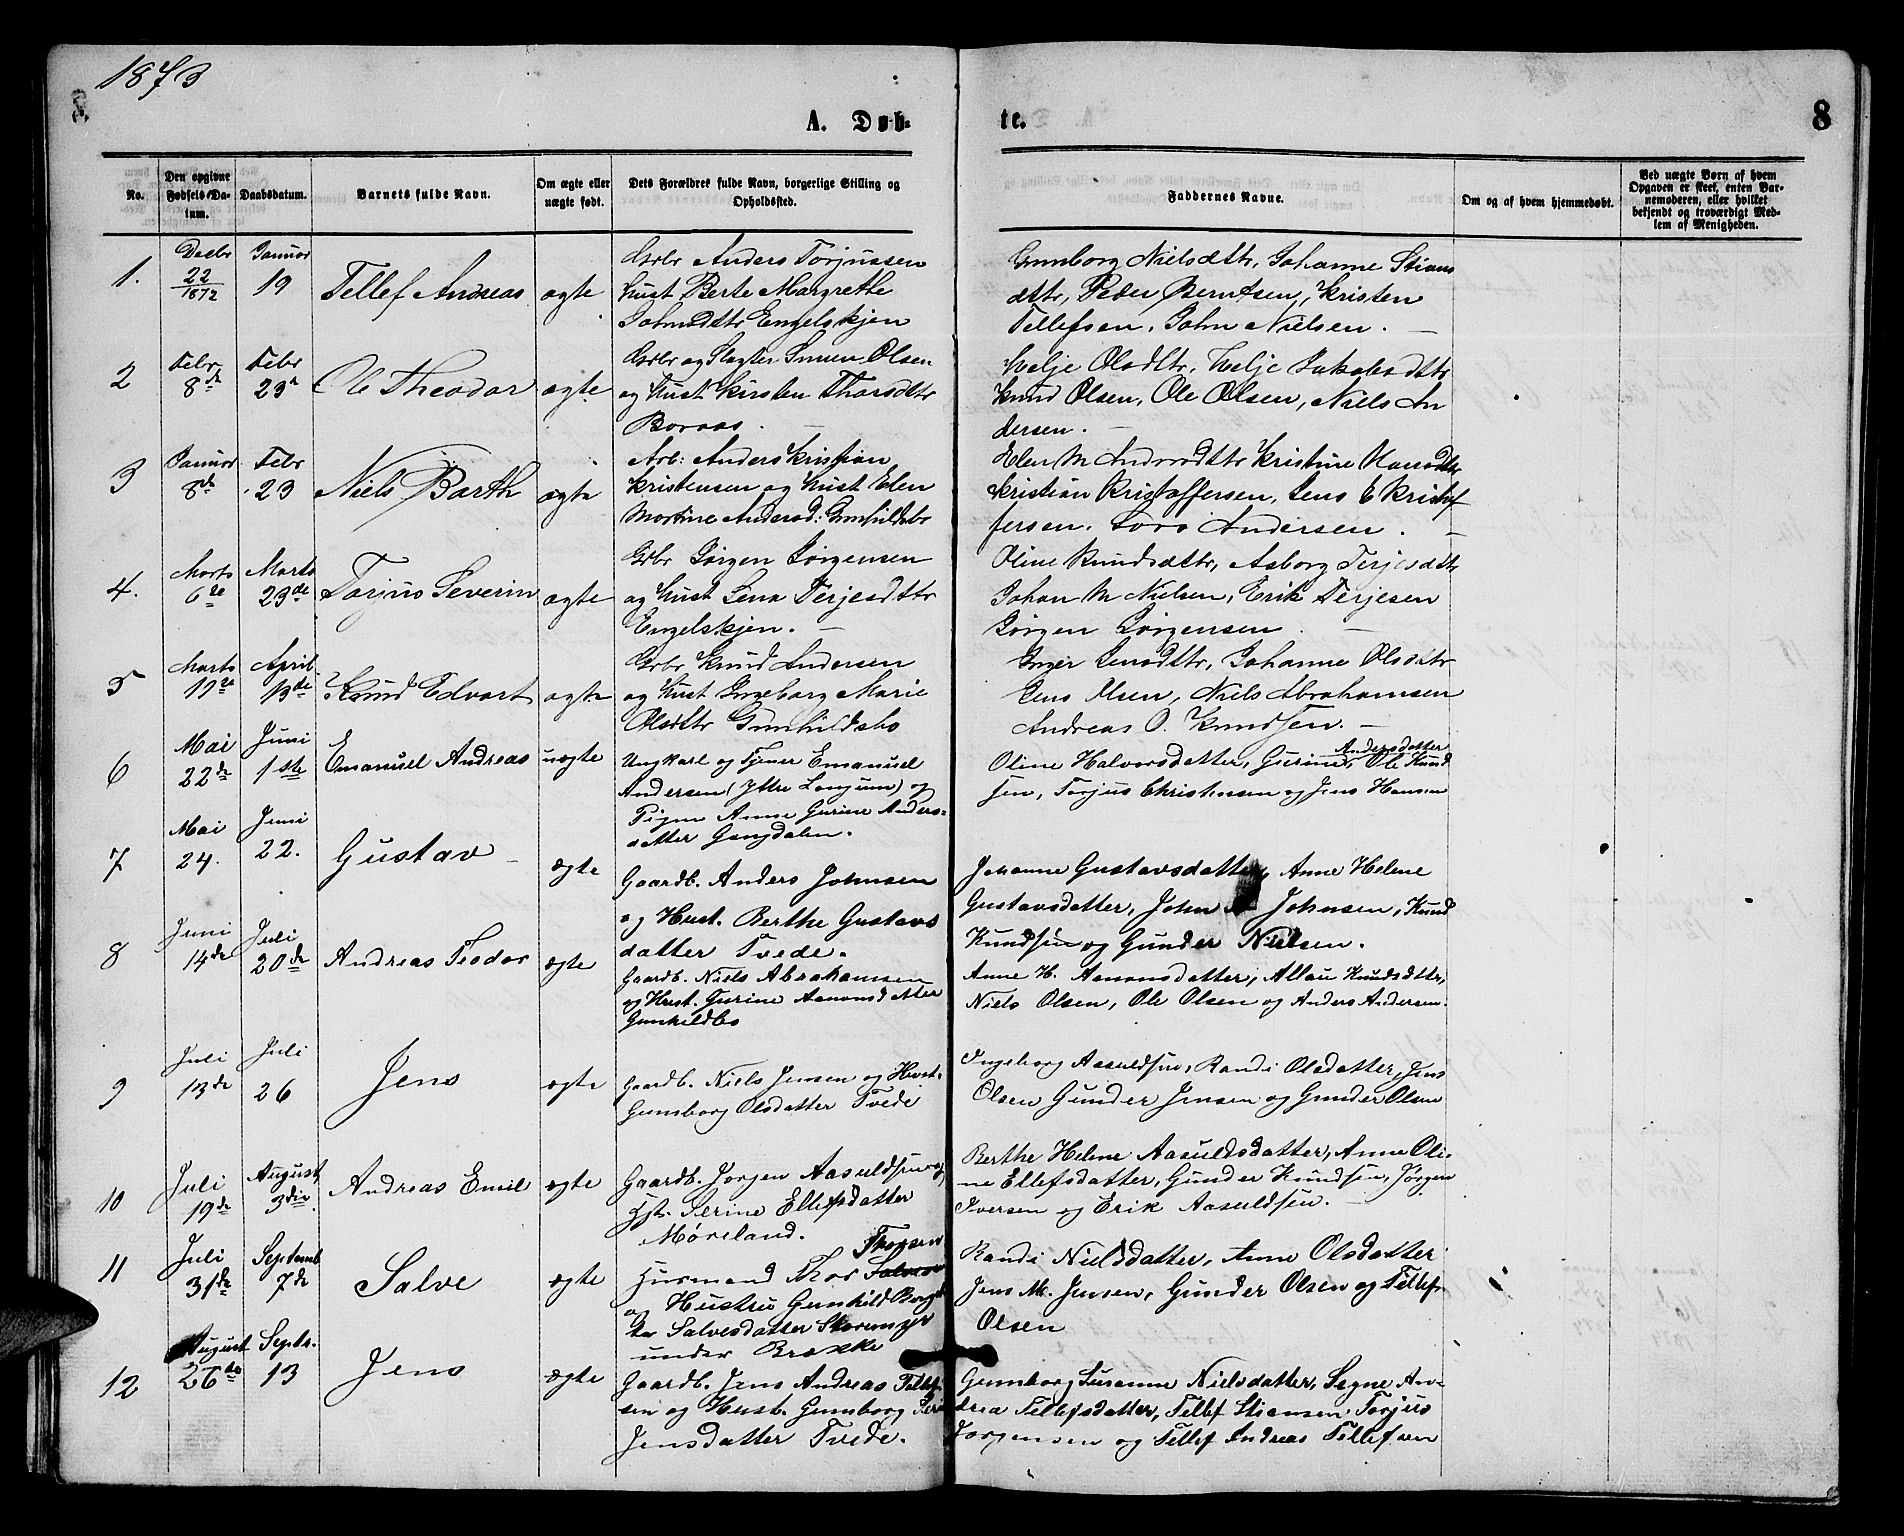 1873
A. Døb-
te.
8
No.
Den opgivne Fødsels-Da-tum.
Daabsdatum.
Barnets fulde Navn.
Om ægte eller uægte født.
Dets Forældres fulde Navn, borgerlige Stilling og Opholdssted.
Faddernes Navne.
Om og af hvem hjemmedøbt.
Ved uægte Børn af hvem Opgaven er skeet, enten Bar-nemoderen, eller hvilket bekjendt og troværdigt Med-lem af Menigheden.
1.
Decbr 22 1872
Januar 19
Tellef Andreas
ægte
Grbr Anders Torjussen
Hust Berte Margrethe
Johnsdttr Engelskjen
Gunborg Nielsdttr, Johanne Stians
dttr, Peder Berntsen, Kristen
Tellefsen, John Nielsen.
2
Febr 8de
Febr 23
Ole Theodor
ægte
Grbr og Slagter Simen Olsen
og Hust Kirsten Thorsdttr
Boraas.
Helje Olsdttr, Helje Jakobsdttr
Knud Olsen, Ole Olsen, Niels An
dersen.
3
Januar 8de
Febr 23
Niels Barth
ægte
Arb: Anders Kristian
Kristensen og Hust Elen
Martine Andersd: Gunhildsbo
Elen M Andersdttr Kristine Hansdttr
Kristian Kristoffersen, Jens E Kristof
fersen. Lars Andersen.
4.
Marts 6te
Marts 23de
Torjus Severin
ægte
Grbr Jørgen Jørgensen
og Hust Lena Terjesdttr
Engelskjen.
Oline Knudsdttr, Asborg Terjesdttr
Johan M Nielsen, Erik Terjesen
Jørgen Jørgensen
5
Marts 19de
April 13de
Knud Edvart
ægte
Grbr Knud Andersen
og Hust Ingeborg Marie
Olsdttr Gunhildsbo
Inger Jensdttr, Johanne Olsdttr
Jens Olsen, Niels Abrahamsen
Andreas O. Knudsen.
6
Mai 22de
Juni 1ste
Emanuel Andreas
uægte
Ungkarl og Tjener Emanuel
Andersen (Ytre Longum) og
Pigen Anne Gurine Anders-
datter Gangdalen.
Oline Halvorsdatter, Gurine Andersdatter, Ole Knud
sen, Torjus Christensen og Jens Hansen
7
Mai 24.
Juni 22.
Gustav
ægte
Gaardb. Anders Johnsen
og Hust. Berthe Gustavs
datter Tvede.
Johanne Gustavsdatter, Anne Helene
Gustavsdatter, John Johnsen, Knud
Knudsen og Gunder Nielsen.
8
Juni 14de
Juli 20de
Andreas Teodor
ægte
Gaardb. Niels Abrahamsen
og Hust. Gurine Aanonsdatter
Gunhildbo
Anne H. Aanonsdatter, Allau Knudsdttr,
Niels Olsen, Ole Olsen og Anders Andersen.
9
Juli 13de
Juli 26
Jens
ægte
Gaardb. Niels Jensen og Hust.
Gunborg Olsdatter Tvede
Ingeborg Aasuldsen, Randi Olsdatter, Jens
Olsen Gunder Jensen og Gunder Olsen
10
Juli 19de
August 3die
Andreas Emil
ægte
Gaardb. Jørgen Aasuldsen og
Hst. Serine Ellefsdatter
Møreland.
Berthe Helene Aasuldsdatter, Anne Oli-
ne Ellefsdatter, Gunder Knudsen, Jørgen
Iversen og Erik Aasuldsen.
11
Juli 31de
Septemb 7de
Salve
ægte
Husmand Thor Thorsen
og Hustru Gunhild
Salvesdatter
under Brække
Randi Nielsdatter, Anne Olsdatter
Jens M. Jensen, Gunder Olsen og Tellef
Olsen
12
August 26de
Septr. 13
Jens
ægte
Gaardb. Jens Andreas Tellef
sen og Hust. Gunborg
Jensdatter Tvede.
Gunborg Susanne Nielsdatter, Signe An-
drea Tellefsdatter, Tellef Stiansen, Torjus
Jørgensen og Tellef Andreas Tellefsen